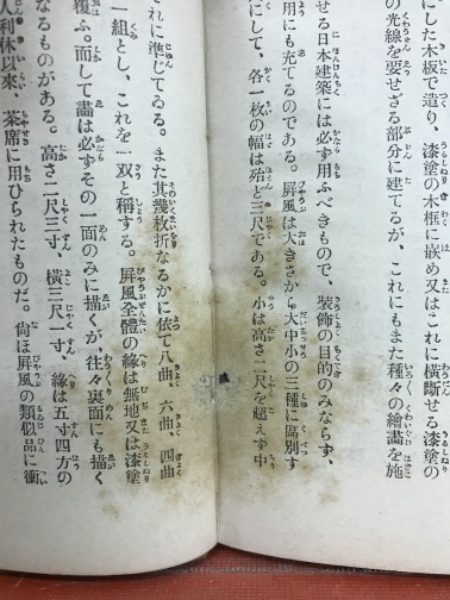 にした木板で造り、漆塗の木框に嵌め又はこれに横斷せる漆塗の
の光線を要せざる部分に建てるが、これにもまた種々の繪畫を施
せる日本建築には必ず用ふべきもので、裝飾の目的のみならず、
用にも充てるのである。屏風は大きさから大中小の三種に區別す
にして、各一枚の幅は殆ど三尺である。小は高さ二尺を超えず中
それに準じてゐる。また其幾枚折なるかに依て八曲、六曲、四曲
一組とし、これを一双と稱する。屏風全體の緣は無地又は漆塗
覆ふ。而して畵は必ずその一面のみに描くが、往々裏面にも描く
なるものがある。高さ二尺三寸、橫三尺一寸、緣は五寸四方の
人利休以來、茶席に用ひられたものだ。尙ほ屏風の類似品に衝